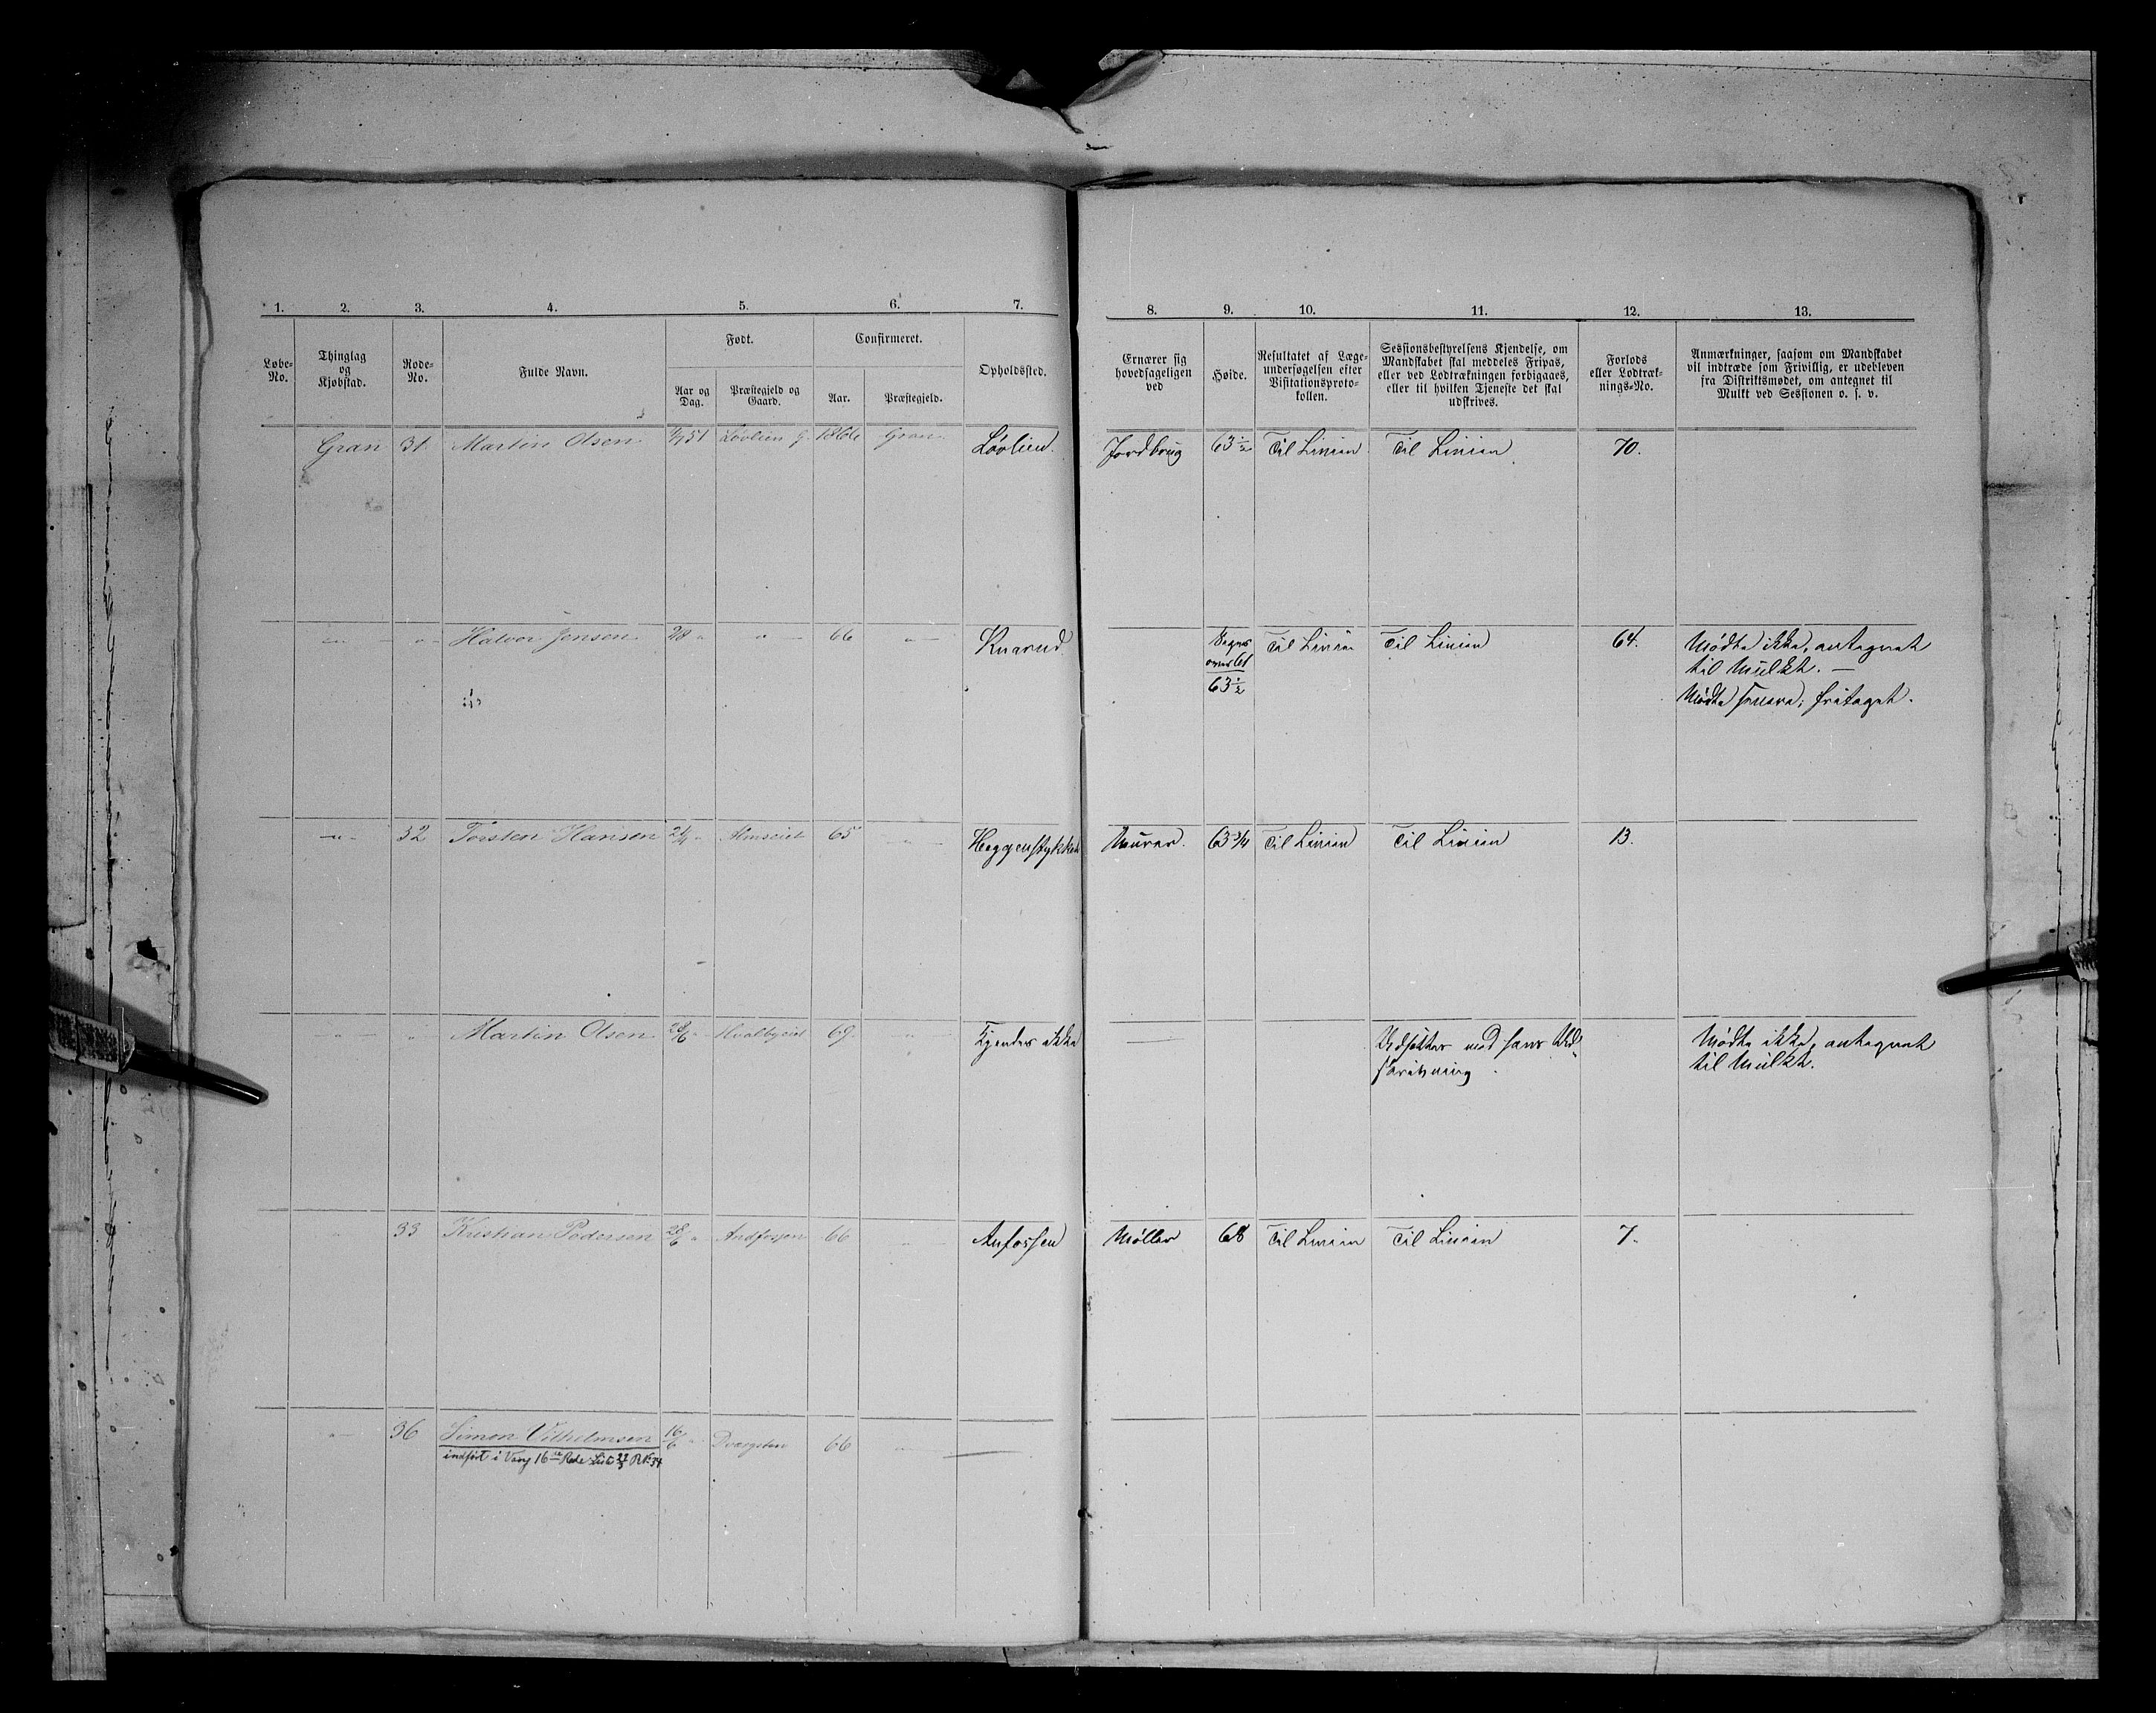 1. 2. 3. 4. 5. 6. 7. 8. 9. 10. 11. 12. 13.
Løbe-No.
Thinglag og Kjøbstad.
Rode-No.
Fulde Navn.
Født.
Aar og Dag.
Præstegjeld og Gaard.
Confirmeret.
Aar.
Præstegjeld.
Opholdssted.
Ernærer sig hovedsageligen ved
Høide.
Resultatet af Læge-undersøgelsen efter Visitationsproto-kollen.
Sessionsbestyrelsens Kjendelse, om Mandskabet skal meddeles Fripas, eller ved Lodtrækningen forbigaaes, eller til hvilken Tjeneste det skal udskrives.
Forlods eller Lodtræk-nings-No.
Anmærkninger, saasom om Mandskabet vil indtræde som Frivillig, er udebleven fra Distriktsmødet, om antegnet til Mulkt ved Sessionen o. s. v.
Gran 31 Martin Olsen 51 Løvlien 1866 Gran Løvlien. Jordbrug 63½ Til Linien Til Linien 70.
-"- " Halvor Jensen 28 " " 66 " Knarud over 61 63½ Til Linien Til Linien 64. Mødte ikke, antegnet
til Mulkt. —
Mødte senere; fritaget.
-"- 32 Torsten Hansen 21/4 " Almseiet 65 -"- Heggenstykket Murer. 63¾ Til Linien Til Linien 13.
" " Martin Olsen 28/6 " Hvalbyeiet 69 " Kjendes ikke — Udsættes med hans Ud-
skrivning. Mødte ikke, antegnet
til Mulkt.
" 33 Kristian Pedersen 28/6 " Andfossen 66 " Anfossen Møller 68 Til Linien Til Linien 7.
-"- 36 Simon Vilhelmsen 16/6 " Dvergsten 66 -"- —
indført i Vang 16de Rode